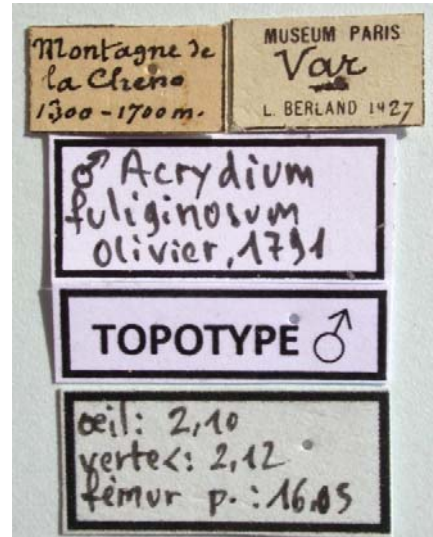 Montagne de
la Chens
1300-1700 m.
MUSEUM PARIS
Var
L. BERLAND 1927
♂ Acrydium
fuliginosum
Olivier, 1791
TOPOTYPE ♂
œil: 2,10
vertex: 2,12
fémur p. : 16,05